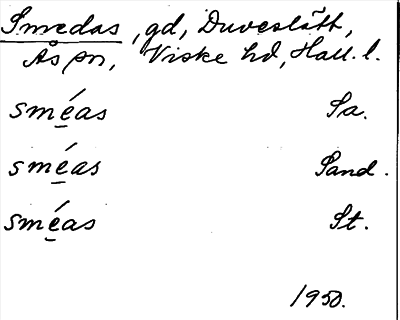 Smedas, gd, Duveslätt,
Ås sn, Viske hd, Hall. l.
sméas Sa.
sméas Sand.
sméas St.
1950.